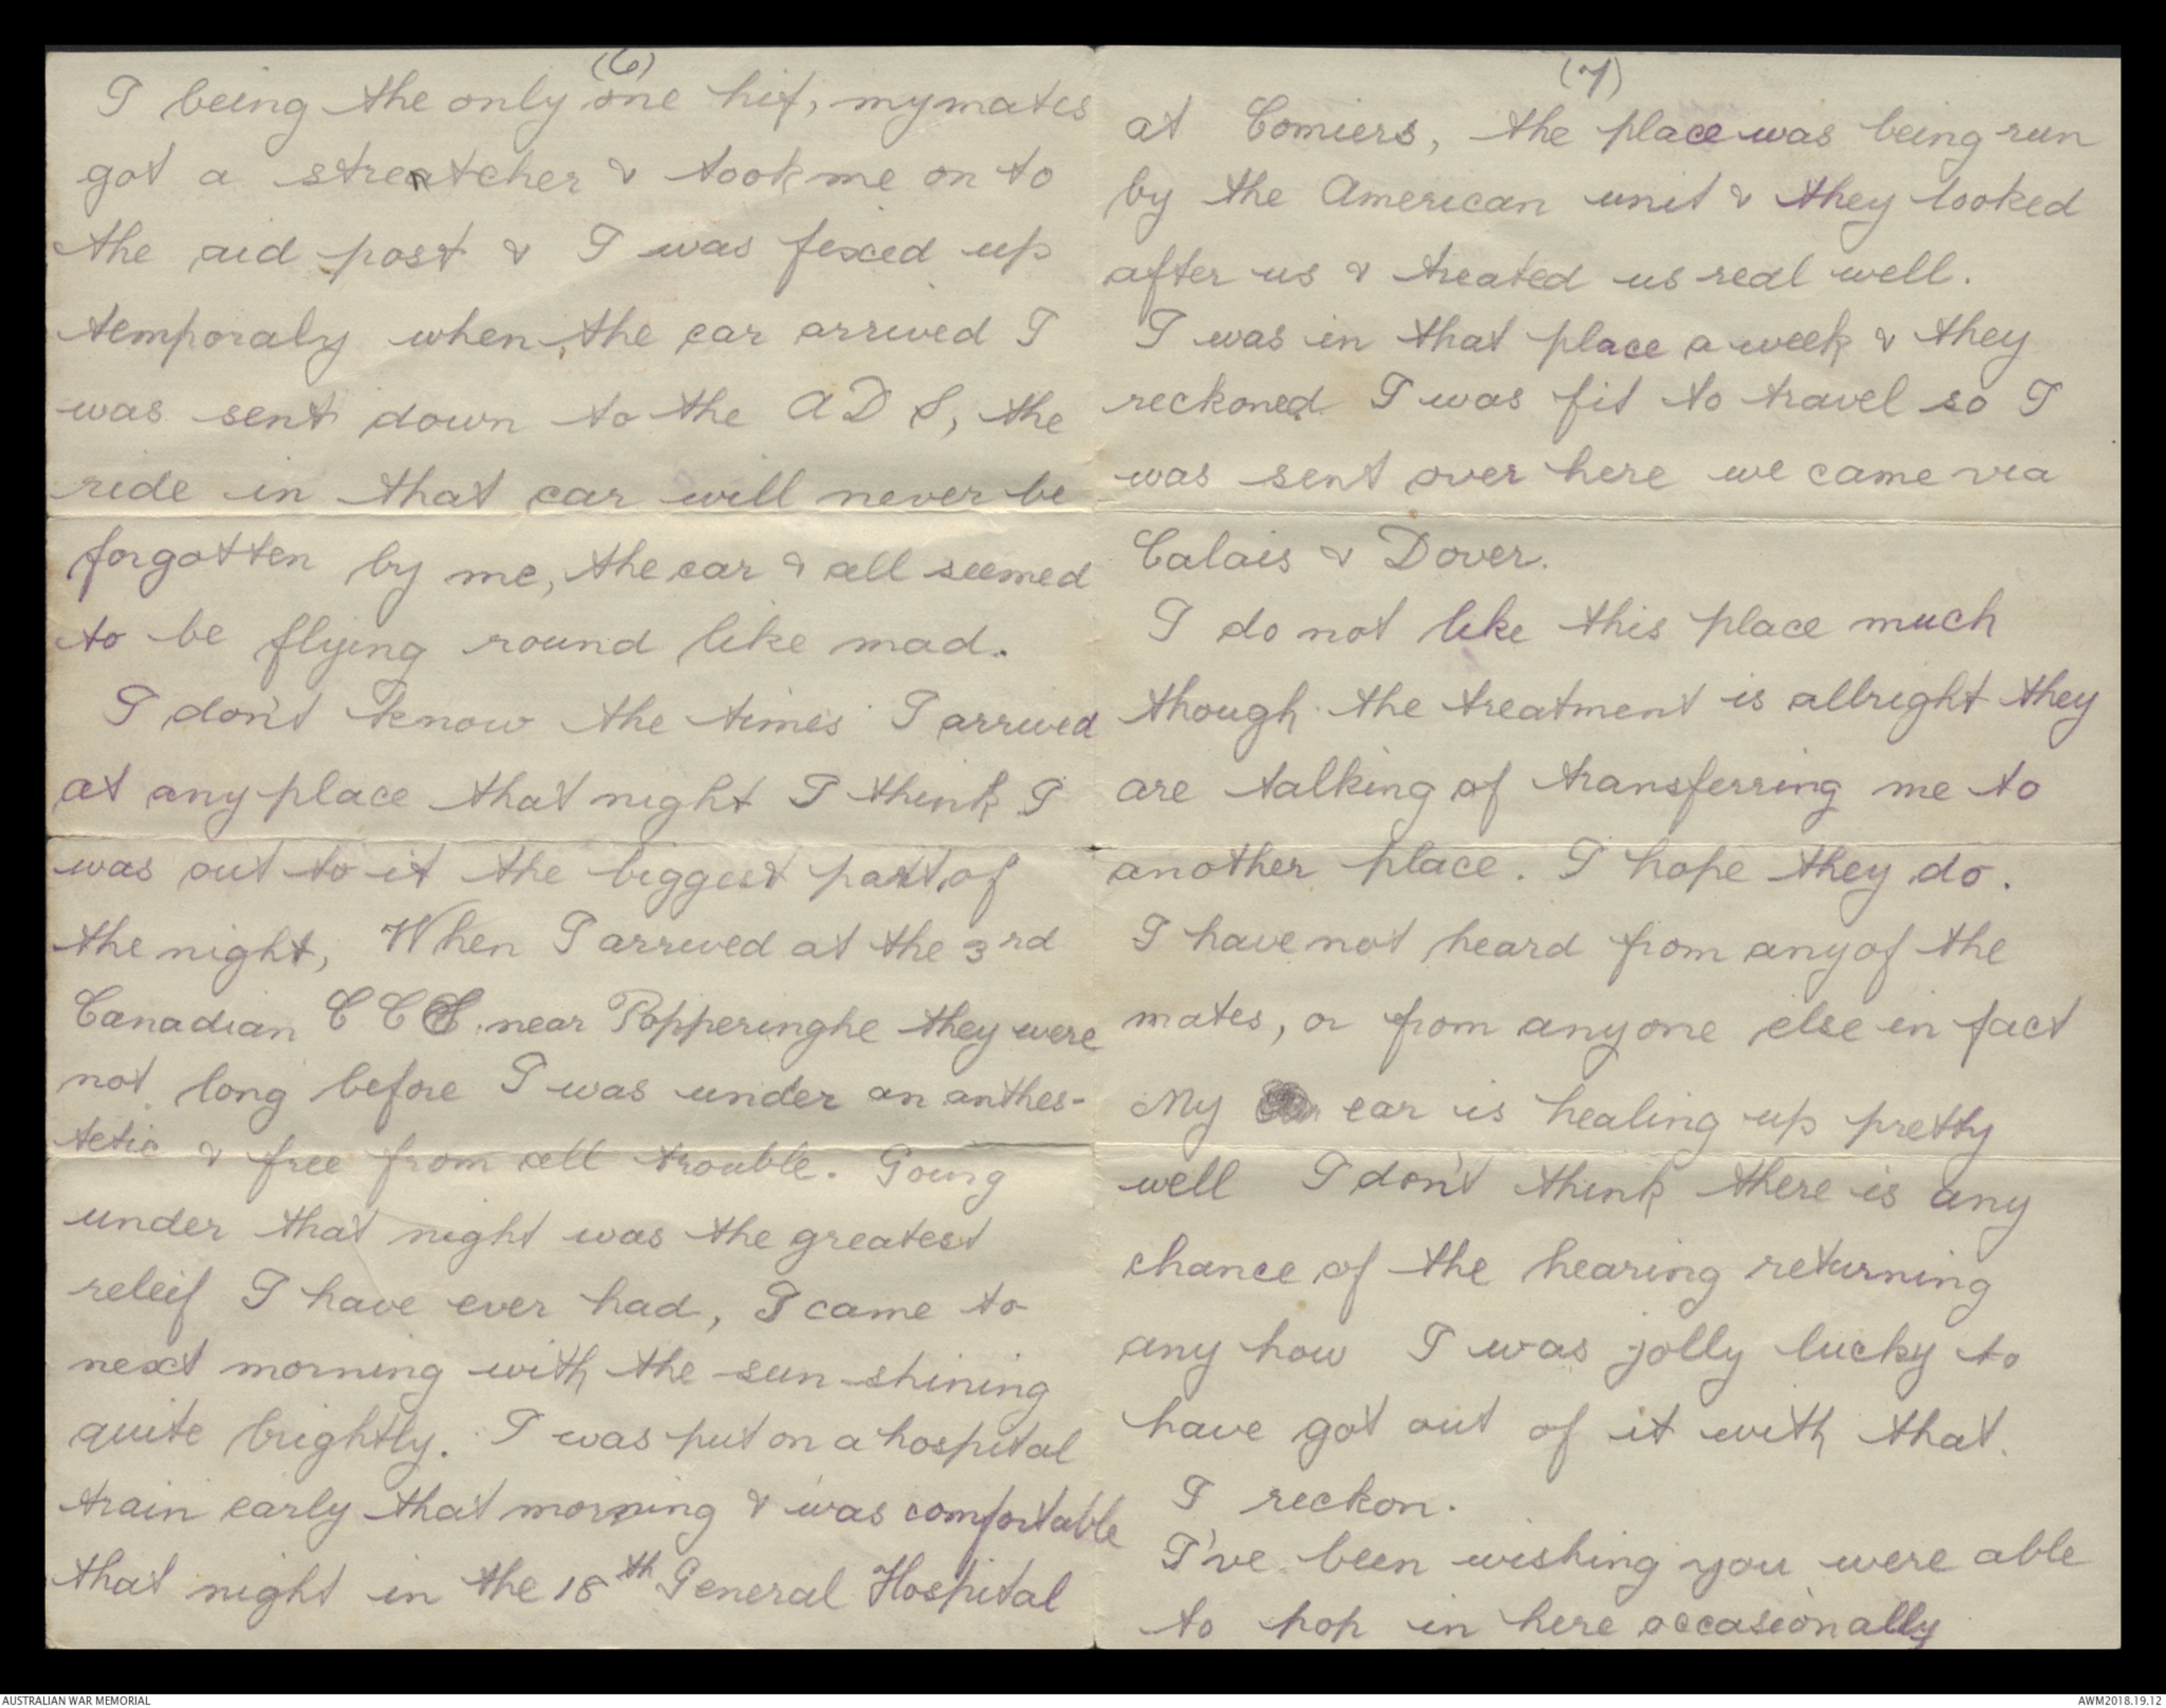 (6)
I being the only one hit, my mates
got a streatcher & took me on to
the aid post & I was fixed up
temporaly when the car arrived I
was sent down to the A D S, the
ride in that car will never be
forgotten by me, the car & all seemed
to be flying round like mad.
I don't know the times I arrived
at any place that night I think I
was out to it the biggest part of
the night, When I arrived at the 3rd
Canadian C C S. near Popperinghe they were
not long before I was under an anthes-
tetic & free from all trouble. Going
under that night was the greatest
releif I have ever had, I came to
next morning with the sun shining
quite brightly. I was put on a hospital
train early that morning & was comfortable
that night in the 18th General Hospital
(7)
at Comiers, the place was being run
by the American unit & they looked
after us & treated us real well.
I was in that place a week & they
reckoned I was fit to travel so I
was sent over here we came via
Calais & Dover.
I do not like this place much
though the treatment is allright they
are talking of transferring me to
another place. I hope they do.
I have not heard from any of the
mates, or from anyone else in fact
My ear is healing up pretty
well I don't think there is any
chance of the hearing returning
any how I was jolly lucky to
have got out of it with that.
I reckon.
I've been wishing you were able
to pop in here occasionally
AUSTRALIAN WAR MEMORIAL
AWM2018.19.12